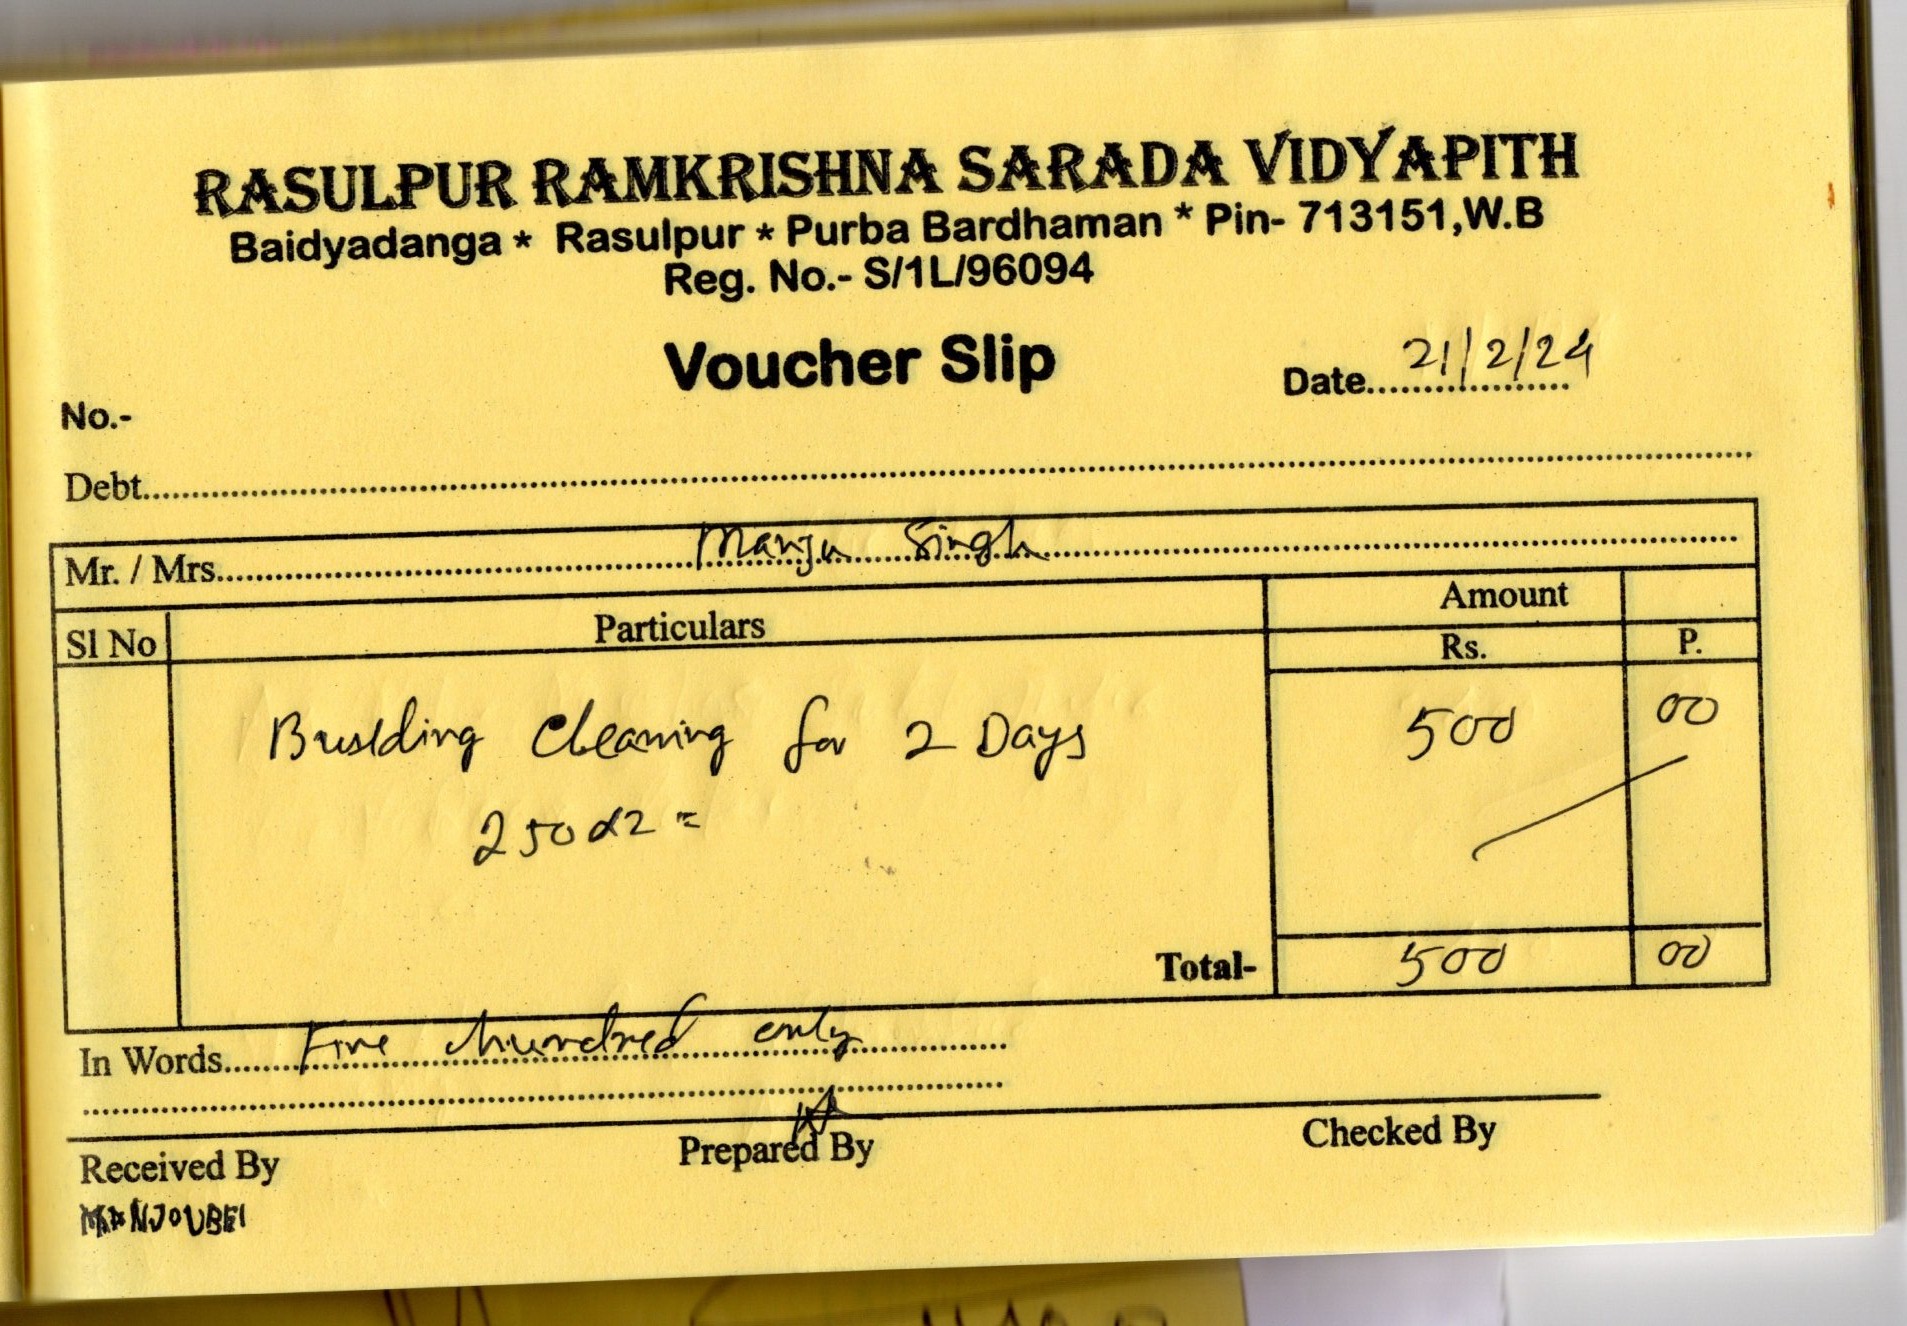 RASULPUR RAMKRISHNA SARADA VIDYAPITH
Baidyadanga * Rasulpur * Purba Bardhaman * Pin- 713151,W.B
Reg. No.- S/1L/96094
Voucher Slip
Date 21/2/24
No.-
Debt
Mr. / Mrs. Manju Singh
Sl No Particulars Amount
Rs. P.
Building Cleaning for 2 Days 500 00
250x2 =
Total- 500 00
In Words Five hundred only
Received By Prepared By Checked By